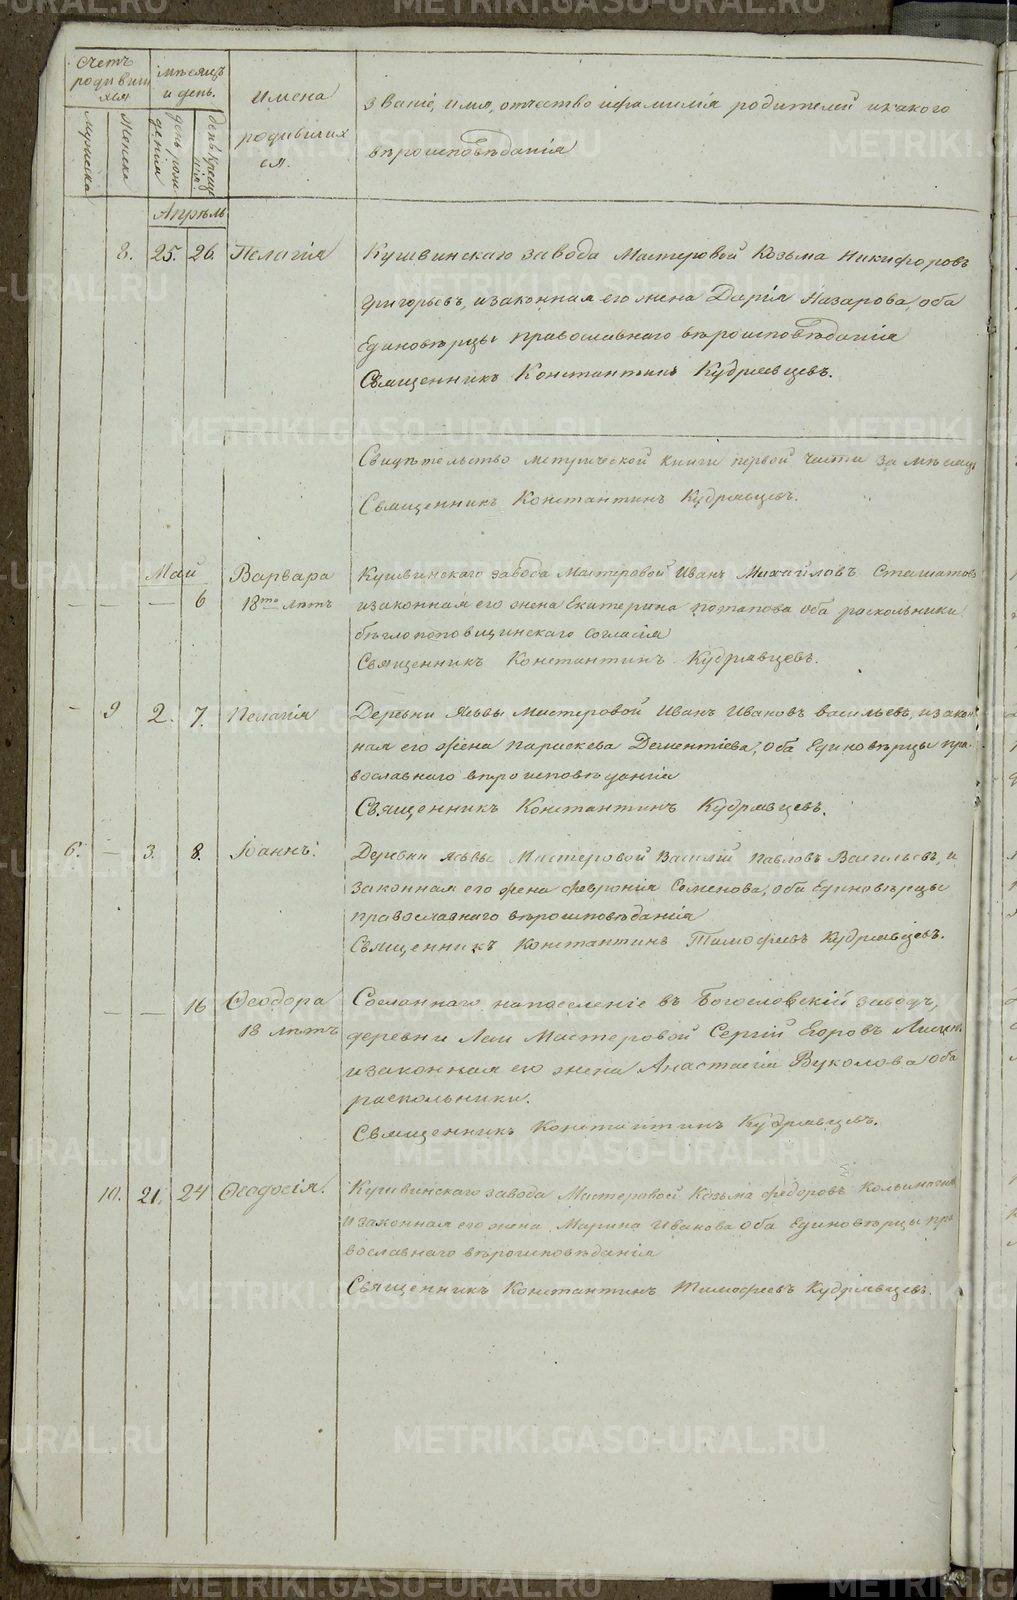 Счетъ родившихся
мѣсяцъ и день.
Имена родившихся.
Званіе, имя, отчество и фамилія родителей и какого
вѣроисповѣданія
Мужеска
Женска
день рожденія
день крещенія
Апрѣль
8. 25. 26. Пелагія Кушвинскаго завода Мастеровой Козьма Никифоровъ
Григорьевъ, и законная его жена Дарія Назарова, оба
Единовѣрцы православнаго вѣроисповѣданія
Священникъ Константинъ Кудрявцевъ.
Свидѣтельство метрической книги первой части за мѣсяцъ
Священникъ Константинъ Кудрявцевъ.
Май Варвара Кушвинскаго завода Мастеровой Иванъ Михайловъ
— — — 6 18ти лѣтъ и законная его жена Екатерина Потапова оба раскольники
бѣглопоповщинскаго согласія
Священникъ Константинъ Кудрявцевъ.
— 9 2. 7. Пелагія Деревни Мастеровой Иванъ Ивановъ Васильевъ, и закон-
ная его жена Параскева Дементіева, оба Единовѣрцы пра-
вославнаго вѣроисповѣданія
Священникъ Константинъ Кудрявцевъ.
6. — 3. 8. Іоаннъ. Деревни Мастеровой Василій Павловъ Васильевъ, и
законная его жена Февронія Семенова, оба Единовѣрцы
православнаго вѣроисповѣданія
Священникъ Константинъ Тимофеевъ Кудрявцевъ.
— — 16 Ѳеодора Сосланнаго на поселеніе въ Богословскій заводъ,
18 лѣтъ деревни Лаи Мастеровой Сергій Егоровъ
и законная его жена Анастасія Вуколова оба
раскольники.
Священникъ Константинъ Кудрявцевъ.
10. 21. 24 Ѳеодосія. Кушвинскаго завода Мастеровой Козьма Федоровъ
и законная его жена Марина Иванова оба Единовѣрцы пра-
вославнаго вѣроисповѣданія
Священникъ Константинъ Тимофеевъ Кудрявцевъ.
METRIKI.GASO-URAL.RU